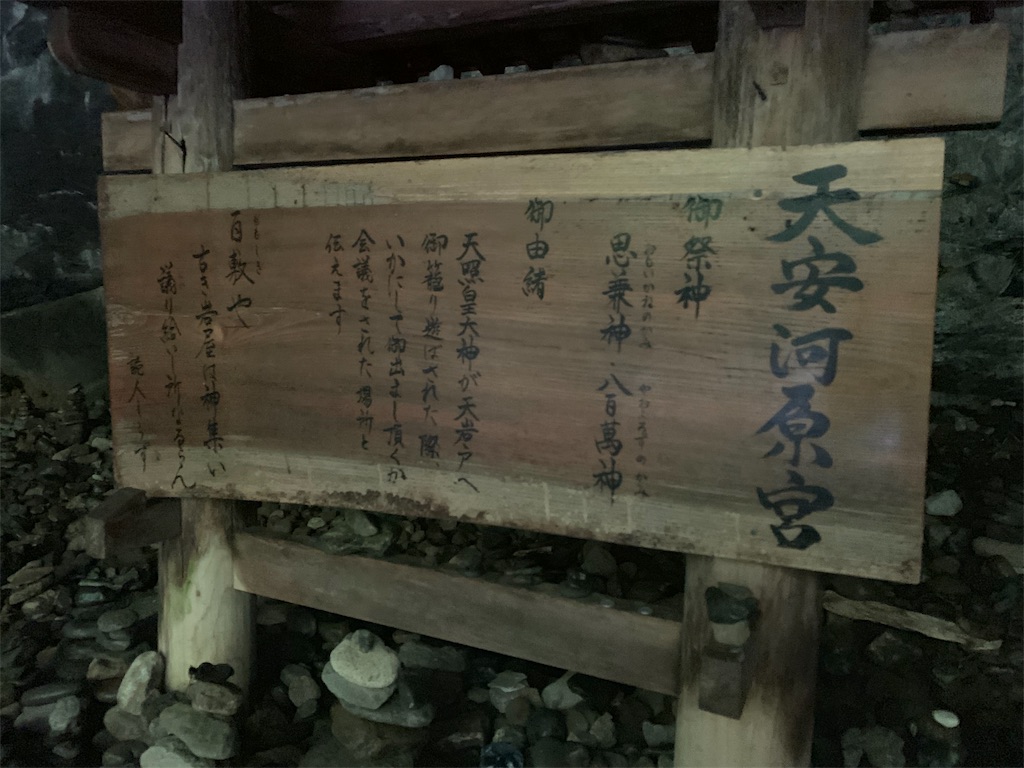 天安河原宮
御祭神
思兼神・八百萬神
おもいかねのかみ
やおよろずのかみ
御由緒
天照皇大神が天岩戸へ
御籠り遊ばされた際、
いかにして御出まし頂くか
会議をされた場所と
伝えます
百敷や
ももしき
古き岩屋は神集い
議り給いし所なるらん
詠人しらず